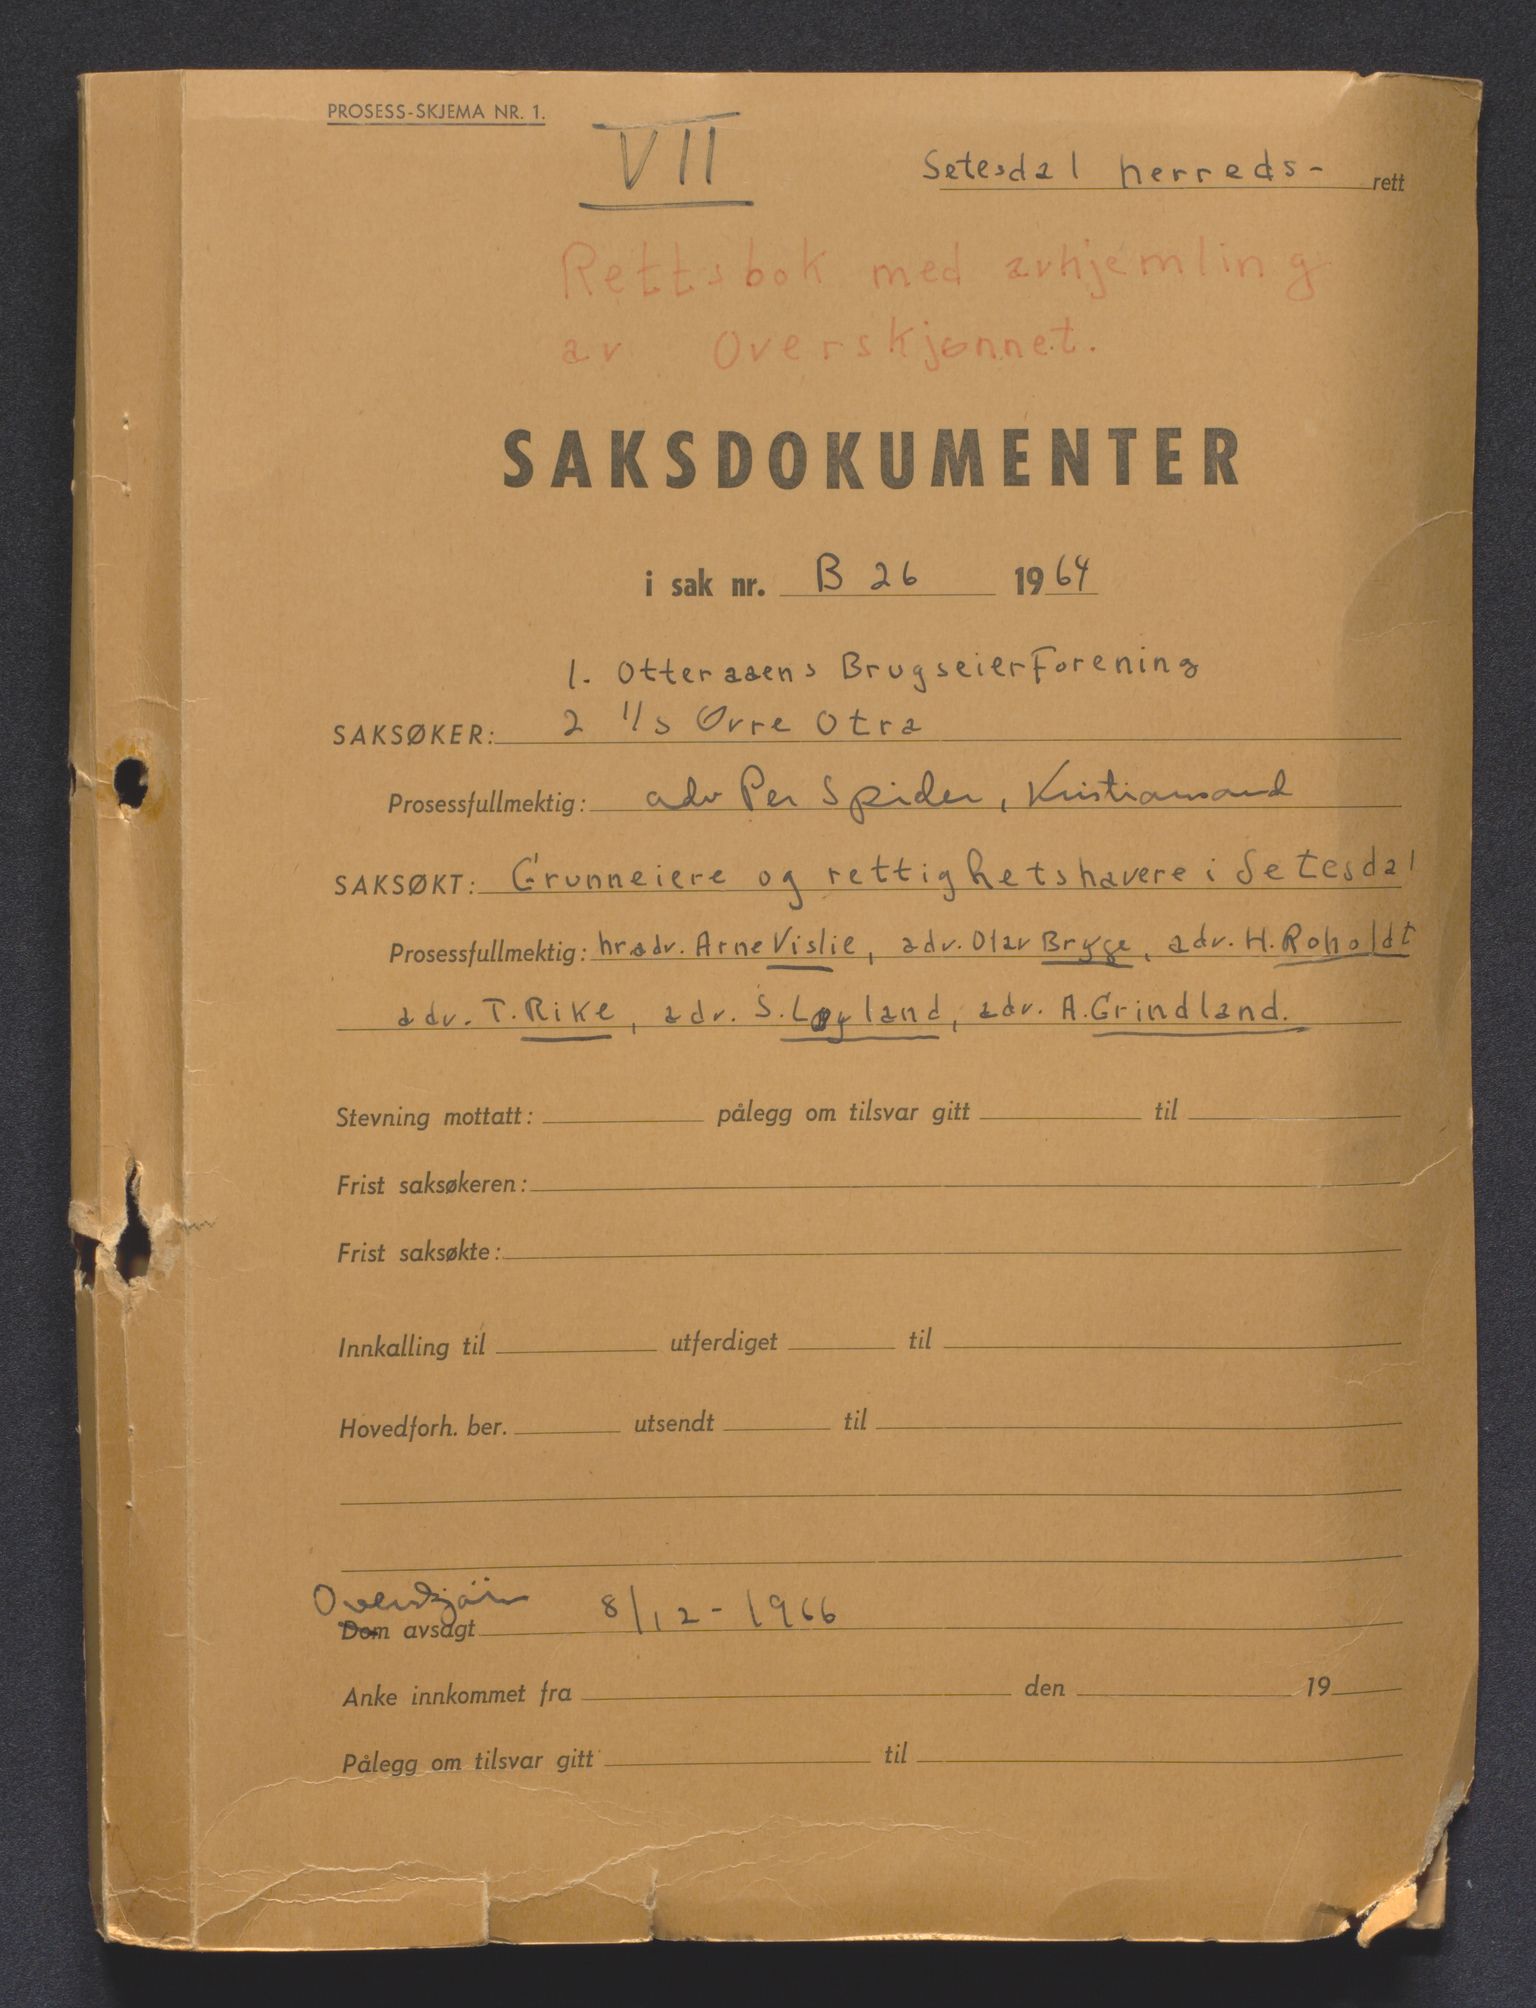 PROSESS-SKJEMA NR. 1.
VII
Setesdal herreds- rett
Rettsbok med avhjemling
av Overskjønnet.
SAKSDOKUMENTER
i sak nr. B 26 1964
1. Otteraaens Brugseierforening
SAKSØKER: 2 I/S Øvre Otra
Prosessfullmektig: adv Per Spider, Kristiansand
SAKSØKT: Grunneiere og rettighetshavere i Setesdal
Prosessfullmektig: hradv. Arne Vislie, adv. Olav Brygge, adv. H. Roholdt
adv. T. Rike, adv. S. Løyland, adv. A. Grindland.
Stevning mottatt: pålegg om tilsvar gitt til
Frist saksøkeren:
Frist saksøkte:
Innkalling til utferdiget til
Hovedforh. ber. utsendt til
Overskjønn
Dom avsagt 8/12-1966
Anke innkommet fra den 19
Pålegg om tilsvar gitt til